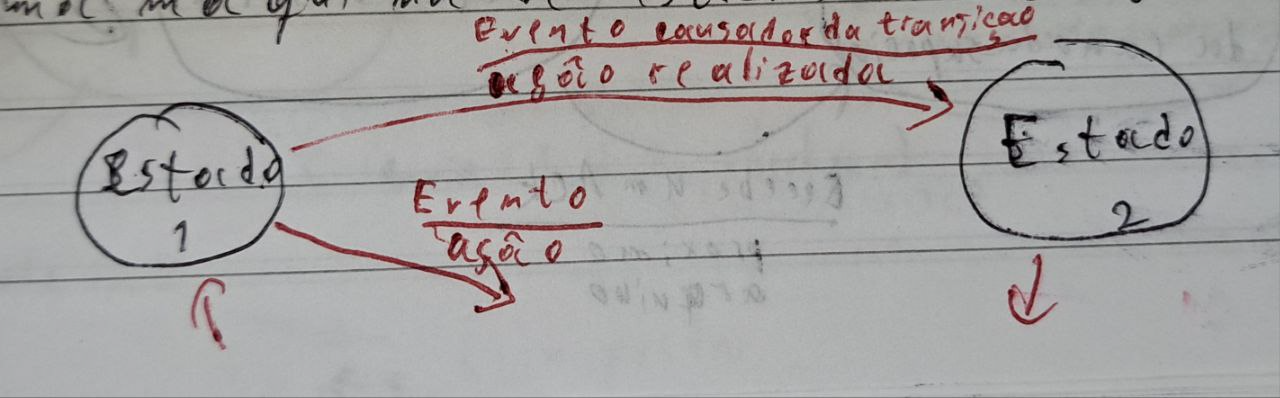 Evento causador da transição
ação realizada
Estado
1
Estado
2
Evento
ação